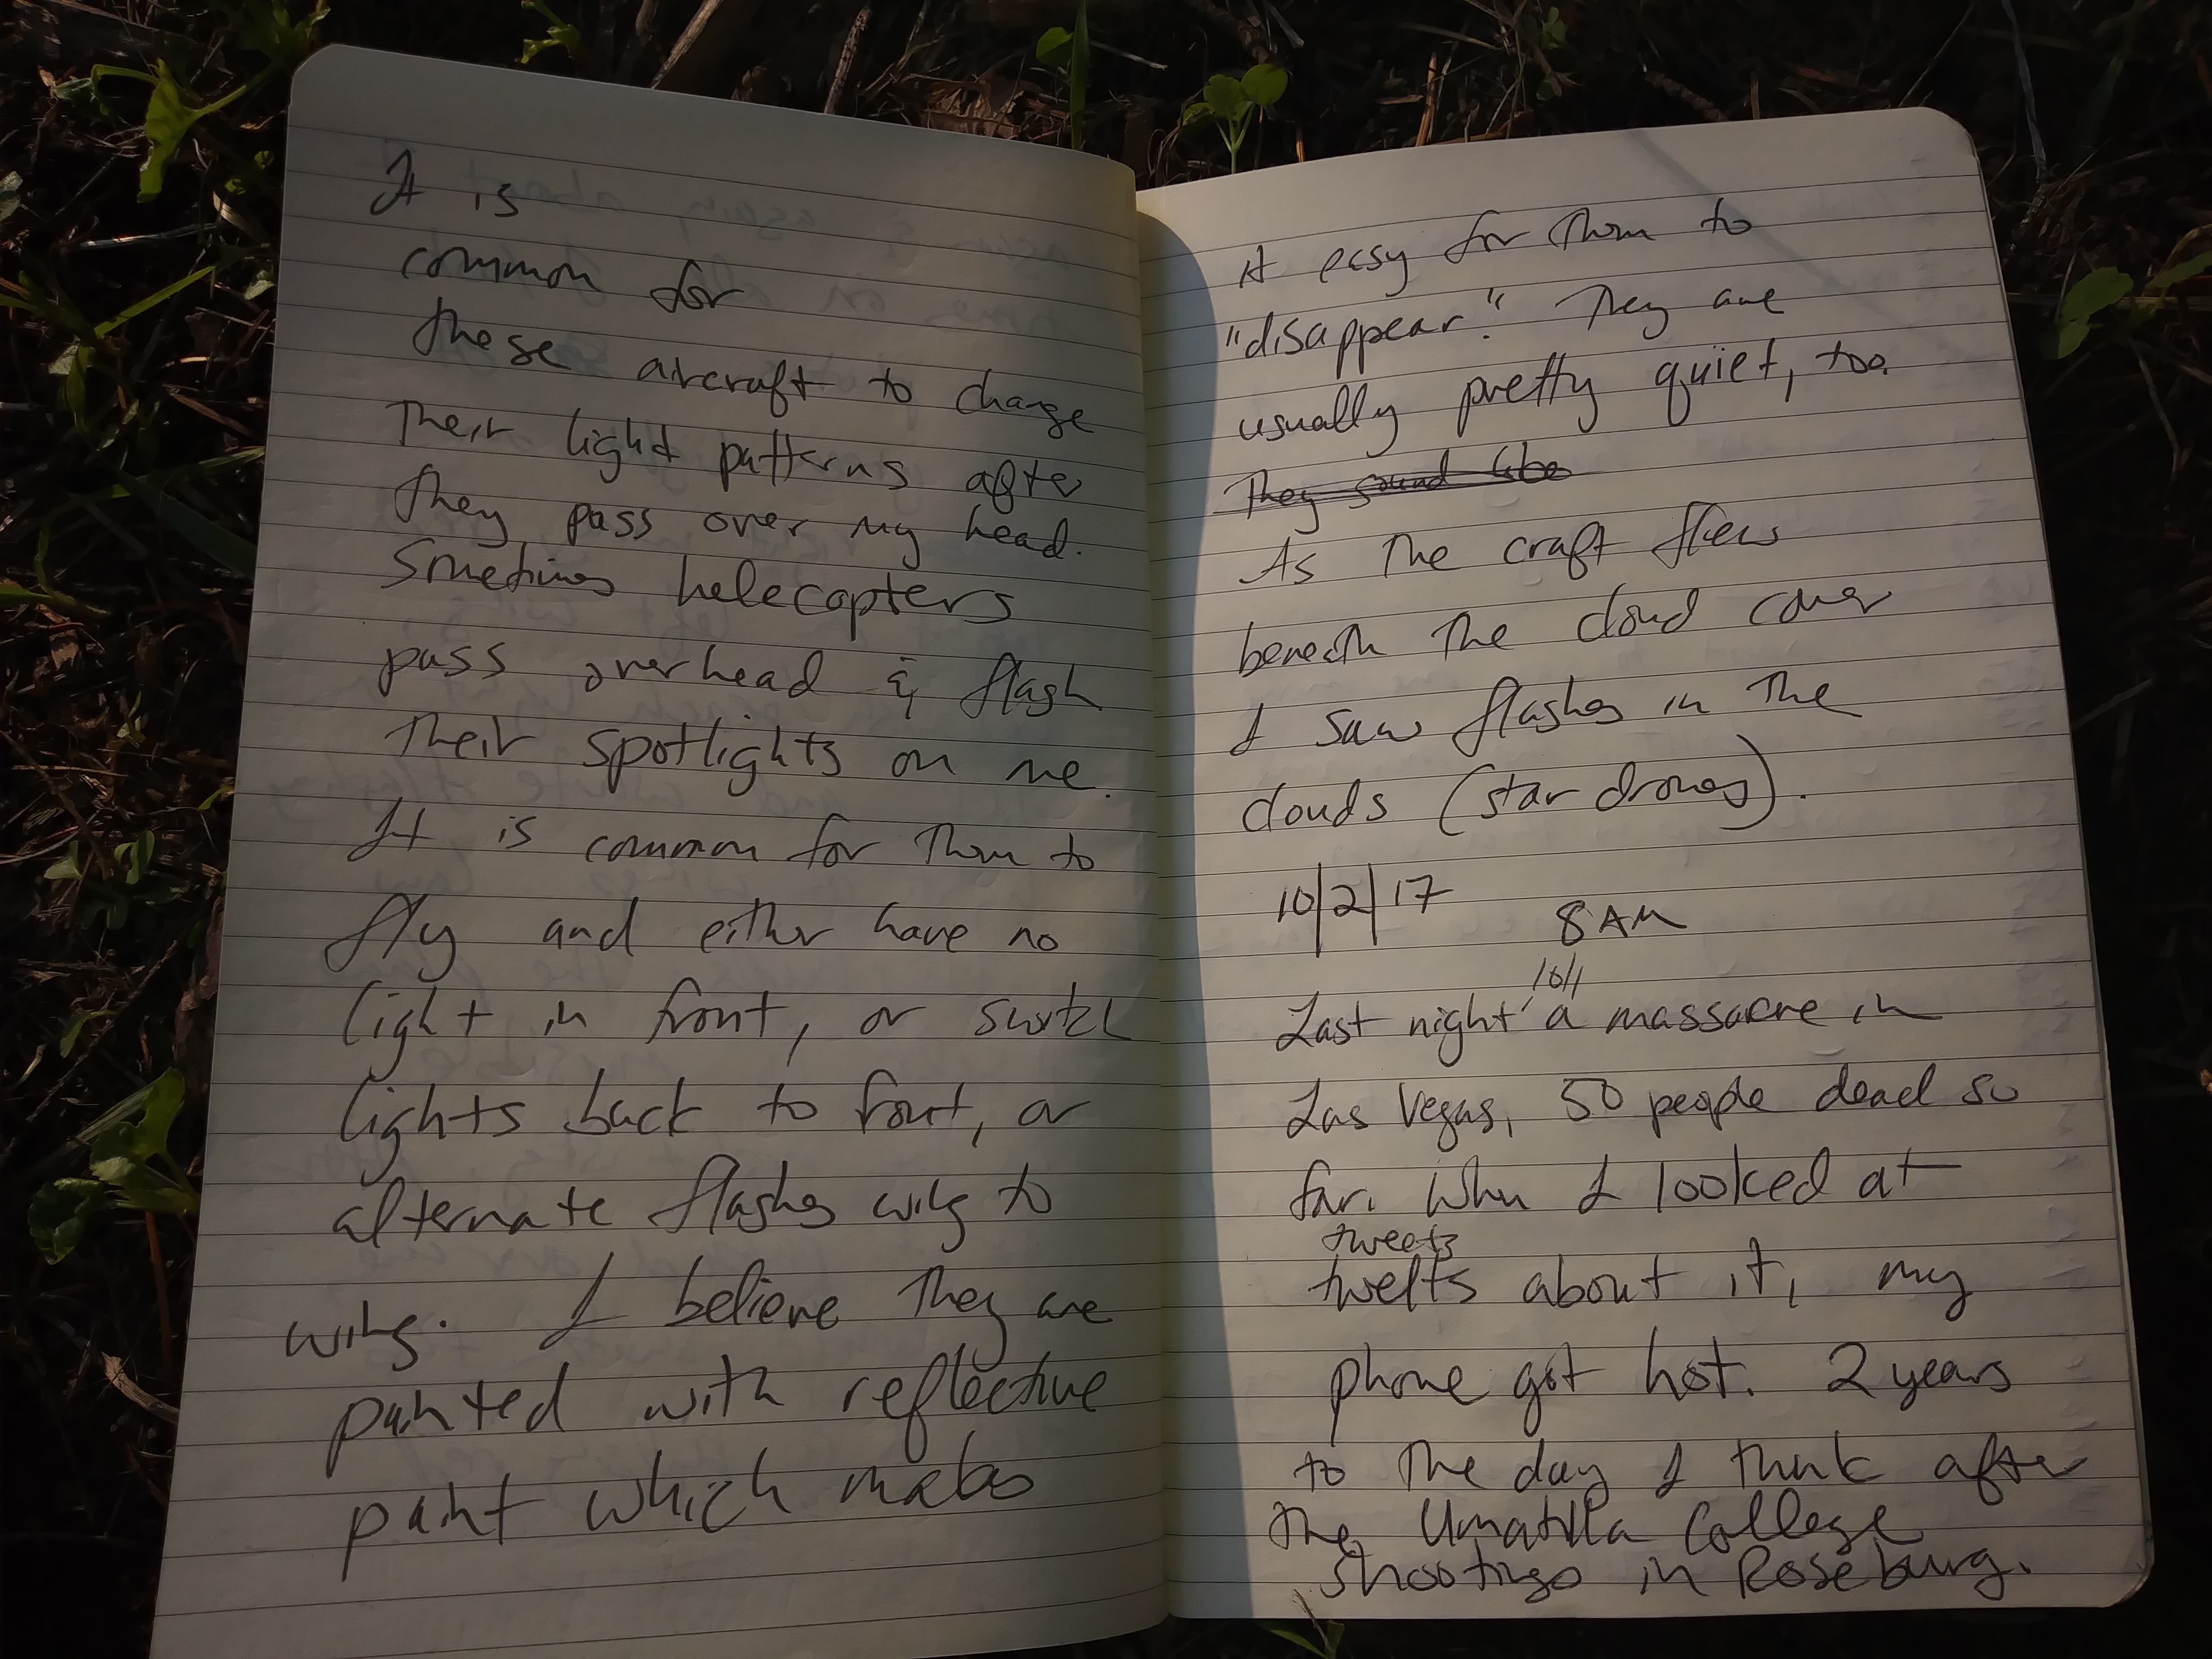 It is
common for
these aircraft to change
their light patterns after
they pass over my head.
Sometimes helecopters
pass overhead & flash
their spotlights on me.
It is common for them to
fly and either have no
light in front, or switch
lights back to front, or
alternate flashes wing to
wing. I believe they are
painted with reflective
paint which makes
it easy for them to
"disappear." They are
usually pretty quiet, too.
They sound like
As the craft flew
beneath the cloud cover
I saw flashes in the
clouds (star drones).
10/2/17 8 AM
10/1
Last night a massacre in
Las Vegas, 50 people dead so
far. When I looked at
tweets
twelts about it, my
phone got hot. 2 years
to the day I think after
the Umatilla College
shootings in Roseburg.